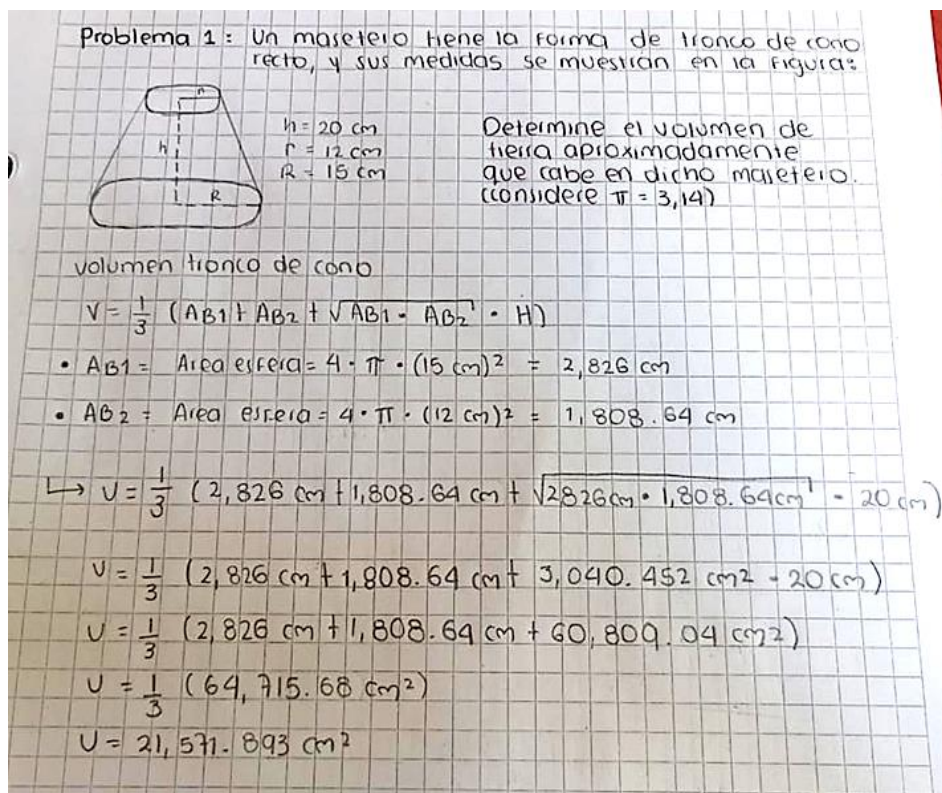 Problema 1: Un masetero tiene la forma de tronco de cono
recto, y sus medidas se muestran en la figura:
r
h
R
h = 20 cm
r = 12 cm
R = 15 cm
Determine el volumen de
tierra aproximadamente
que cabe en dicho masetero.
(considere π = 3,14)
volumen tronco de cono
V = 1/3 (AB1 + AB2 + √AB1 · AB2 · H)
• AB1 = Area esfera = 4 · π · (15 cm)² = 2,826 cm
• AB2 = Area esfera = 4 · π · (12 cm)² = 1,808.64 cm
↳ V = 1/3 (2,826 cm + 1,808.64 cm + √2826cm · 1,808.64cm · 20 cm)
V = 1/3 (2,826 cm + 1,808.64 cm + 3,040.452 cm2 · 20 cm)
V = 1/3 (2,826 cm + 1,808.64 cm + 60,809.04 cm2)
V = 1/3 (64,715.68 cm²)
V = 21,571.893 cm²